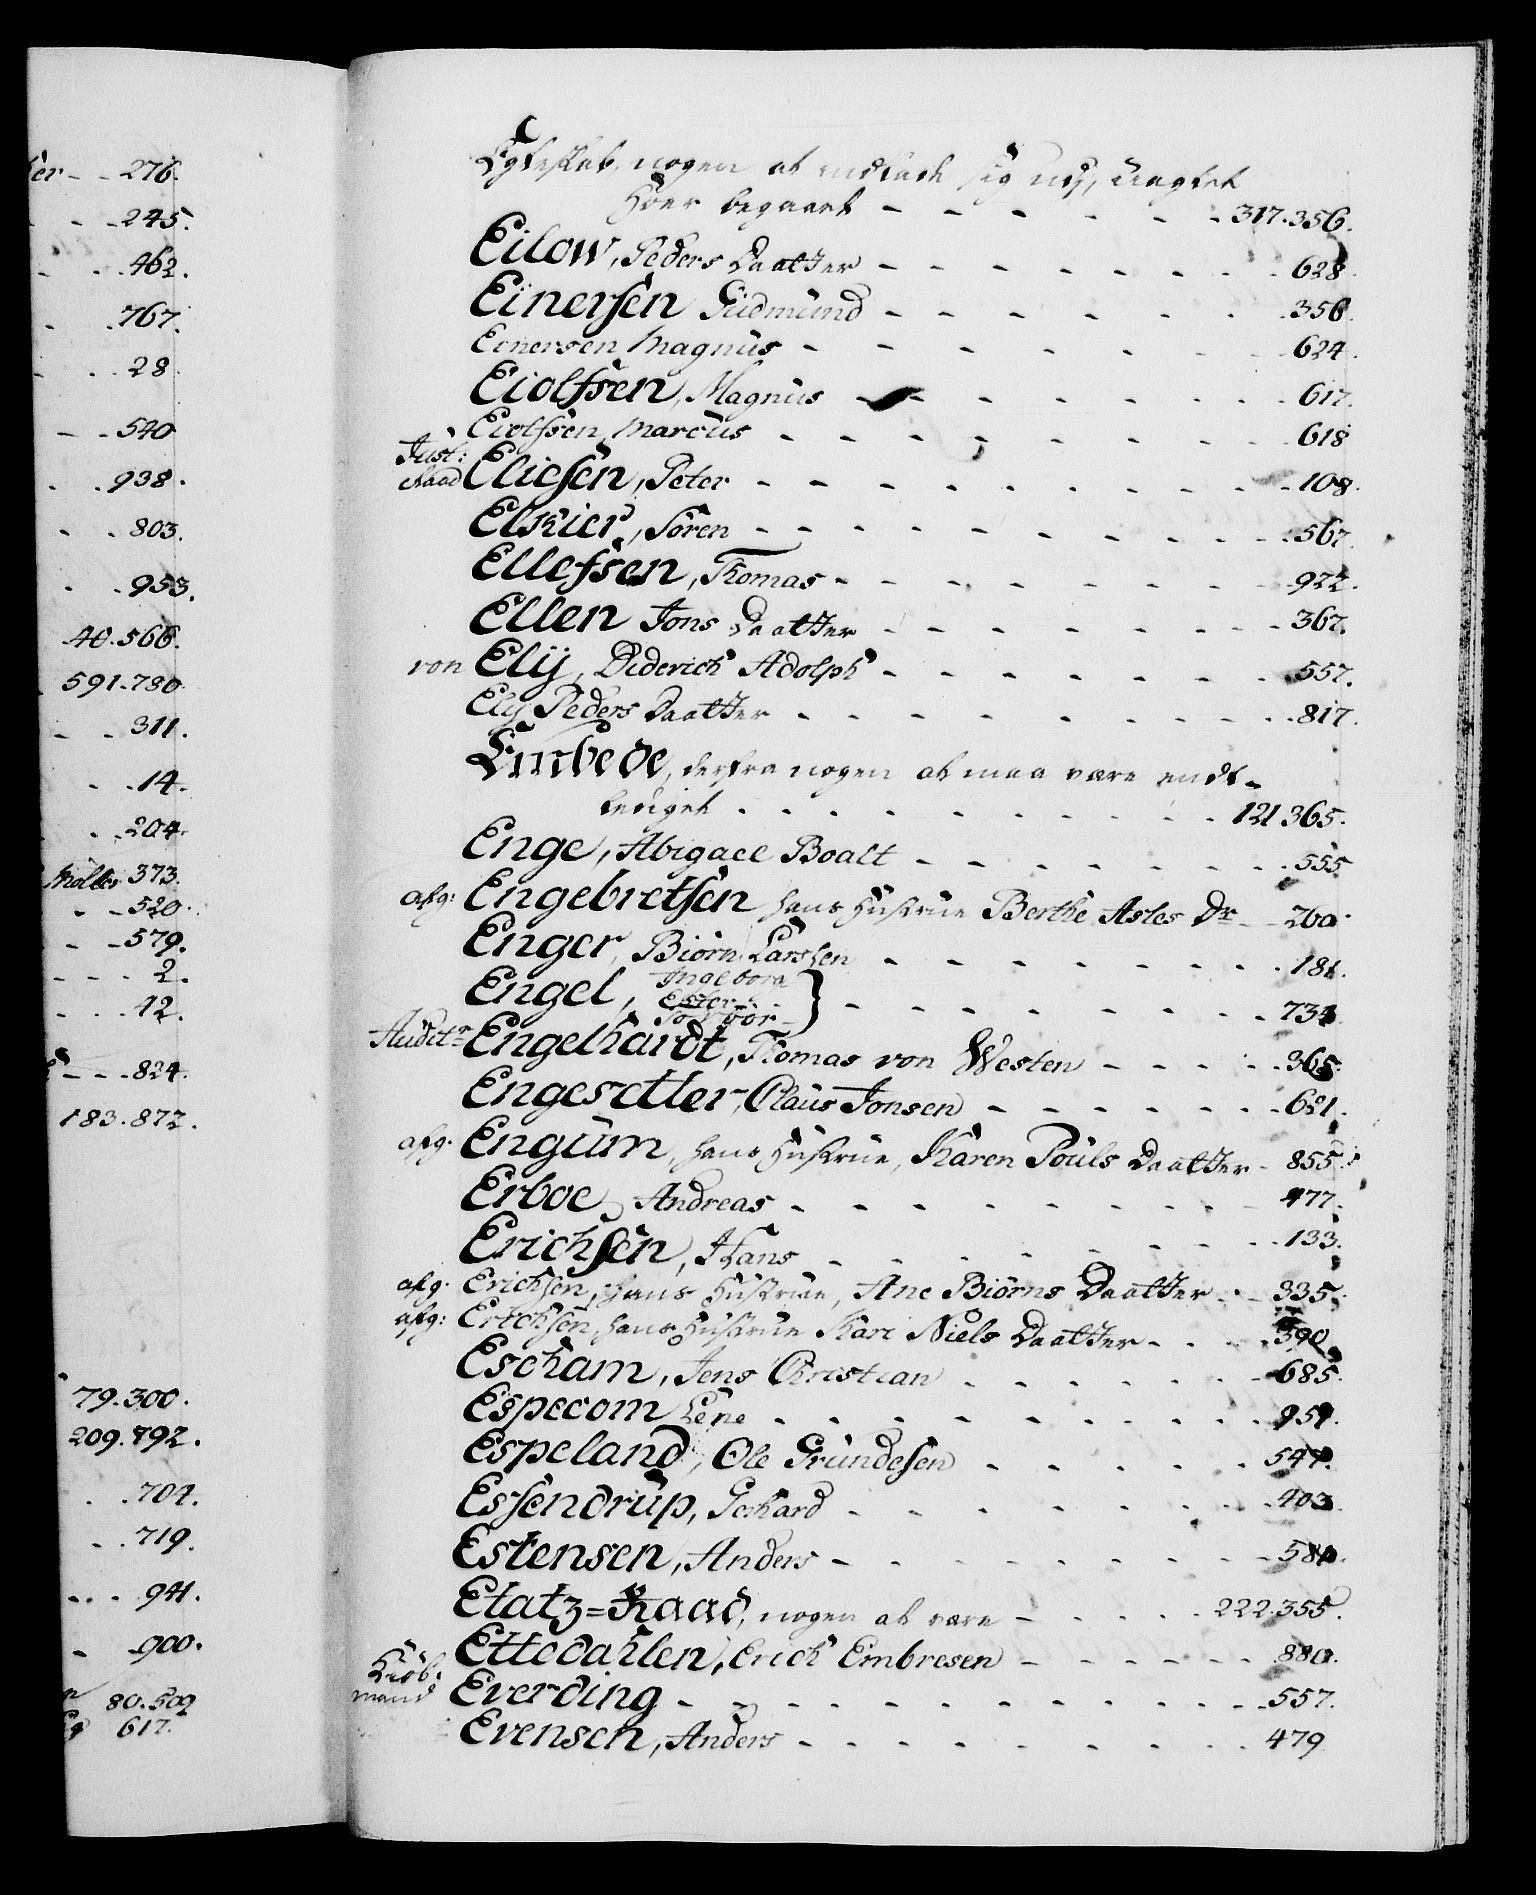 276.
245.
462.
767.
28
540
938.
803.
953.
40.566.
591.780
311.
14.
204.
Møller 373.
520.
579.
2.
12.
824.
183.872.
79.300.
209.892.
704.
719.
941.
900.
80.509
617.
Egteskab, nogen at indlade sig udj, uagtet
Hoer begaaet - - - - - - 317.356.
Eilow, Peders Daatter - - - - - - - - 628
Einersen Gudmund - - - - - - - - 356.
Einersen Magnus - - - - - - - - 624.
Eiolfsen, Magnus - - - - - - - - 617.
Eiolfsen, Marcus - - - - - - - - 618
Just:
Raad Eliesen, Peter - - - - - - - - - 108.
Elkier, Søren - - - - - - - - - 567.
Ellefsen, Thomas - - - - - - - - 922.
Ellen Jons Daatter - - - - - - - - 367.
von Elÿ, Diderich Adolph - - - - - - - 557.
Elÿ Peders Daatter - - - - - - - - 817.
Embede, derfra nogen at maa være endt-
lediget - - - - - - - - - 121.365.
Enge, Abigael Boalt - - - - - - - 555
afg: Engebretsen hans Hustrue Berthe Asles Dr. - 260.
Enger, Biørn Larssen - - - - - - - - 181.
Engel, Ingeborg
Ester
} - - - - - - - - 734.
Auditr Engelhardt, Thomas von Westen - - - - 365.
Engesætter, Claus Jonsen - - - - - - 621.
afg. Engum, hans Hustrue, Karen Pouls Daatter - 855.
Erboe, Andreas - - - - - - - - 477.
Erichsen, Hans - - - - - - - - 133.
afg. Erichsen, hans Hustrue, Ane Biørns Daatter - - 335.
afg: Erichsen, hans Hustrue Kari Niels Daatter - - - 390
Escham, Jens Christian - - - - - - 685.
Especom Lene - - - - - - - - 959.
Espeland, Ole Grundesen - - - - - 547.
Essendrup, Gerhard - - - - - - - 403
Estensen, Anders - - - - - - - - 580.
Etatz=Raad, nogen at være - - - - - 222.355.
Ettedahlen, Erich Embresen - - - - - - 880.
Kiøb-
mand Everding - - - - - - - - - - 557.
Evensen, Anders - - - - - - - - 479